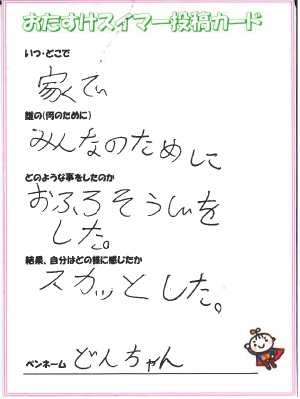 おたすけスイマー投稿カード
いつ・どこで
家てい
誰の(何のために)
みんなのために
どのような事をしたのか
おふろそうじを
した。
結果、自分はどの様に感じたか
スカッとした。
ペンネーム どんちゃん